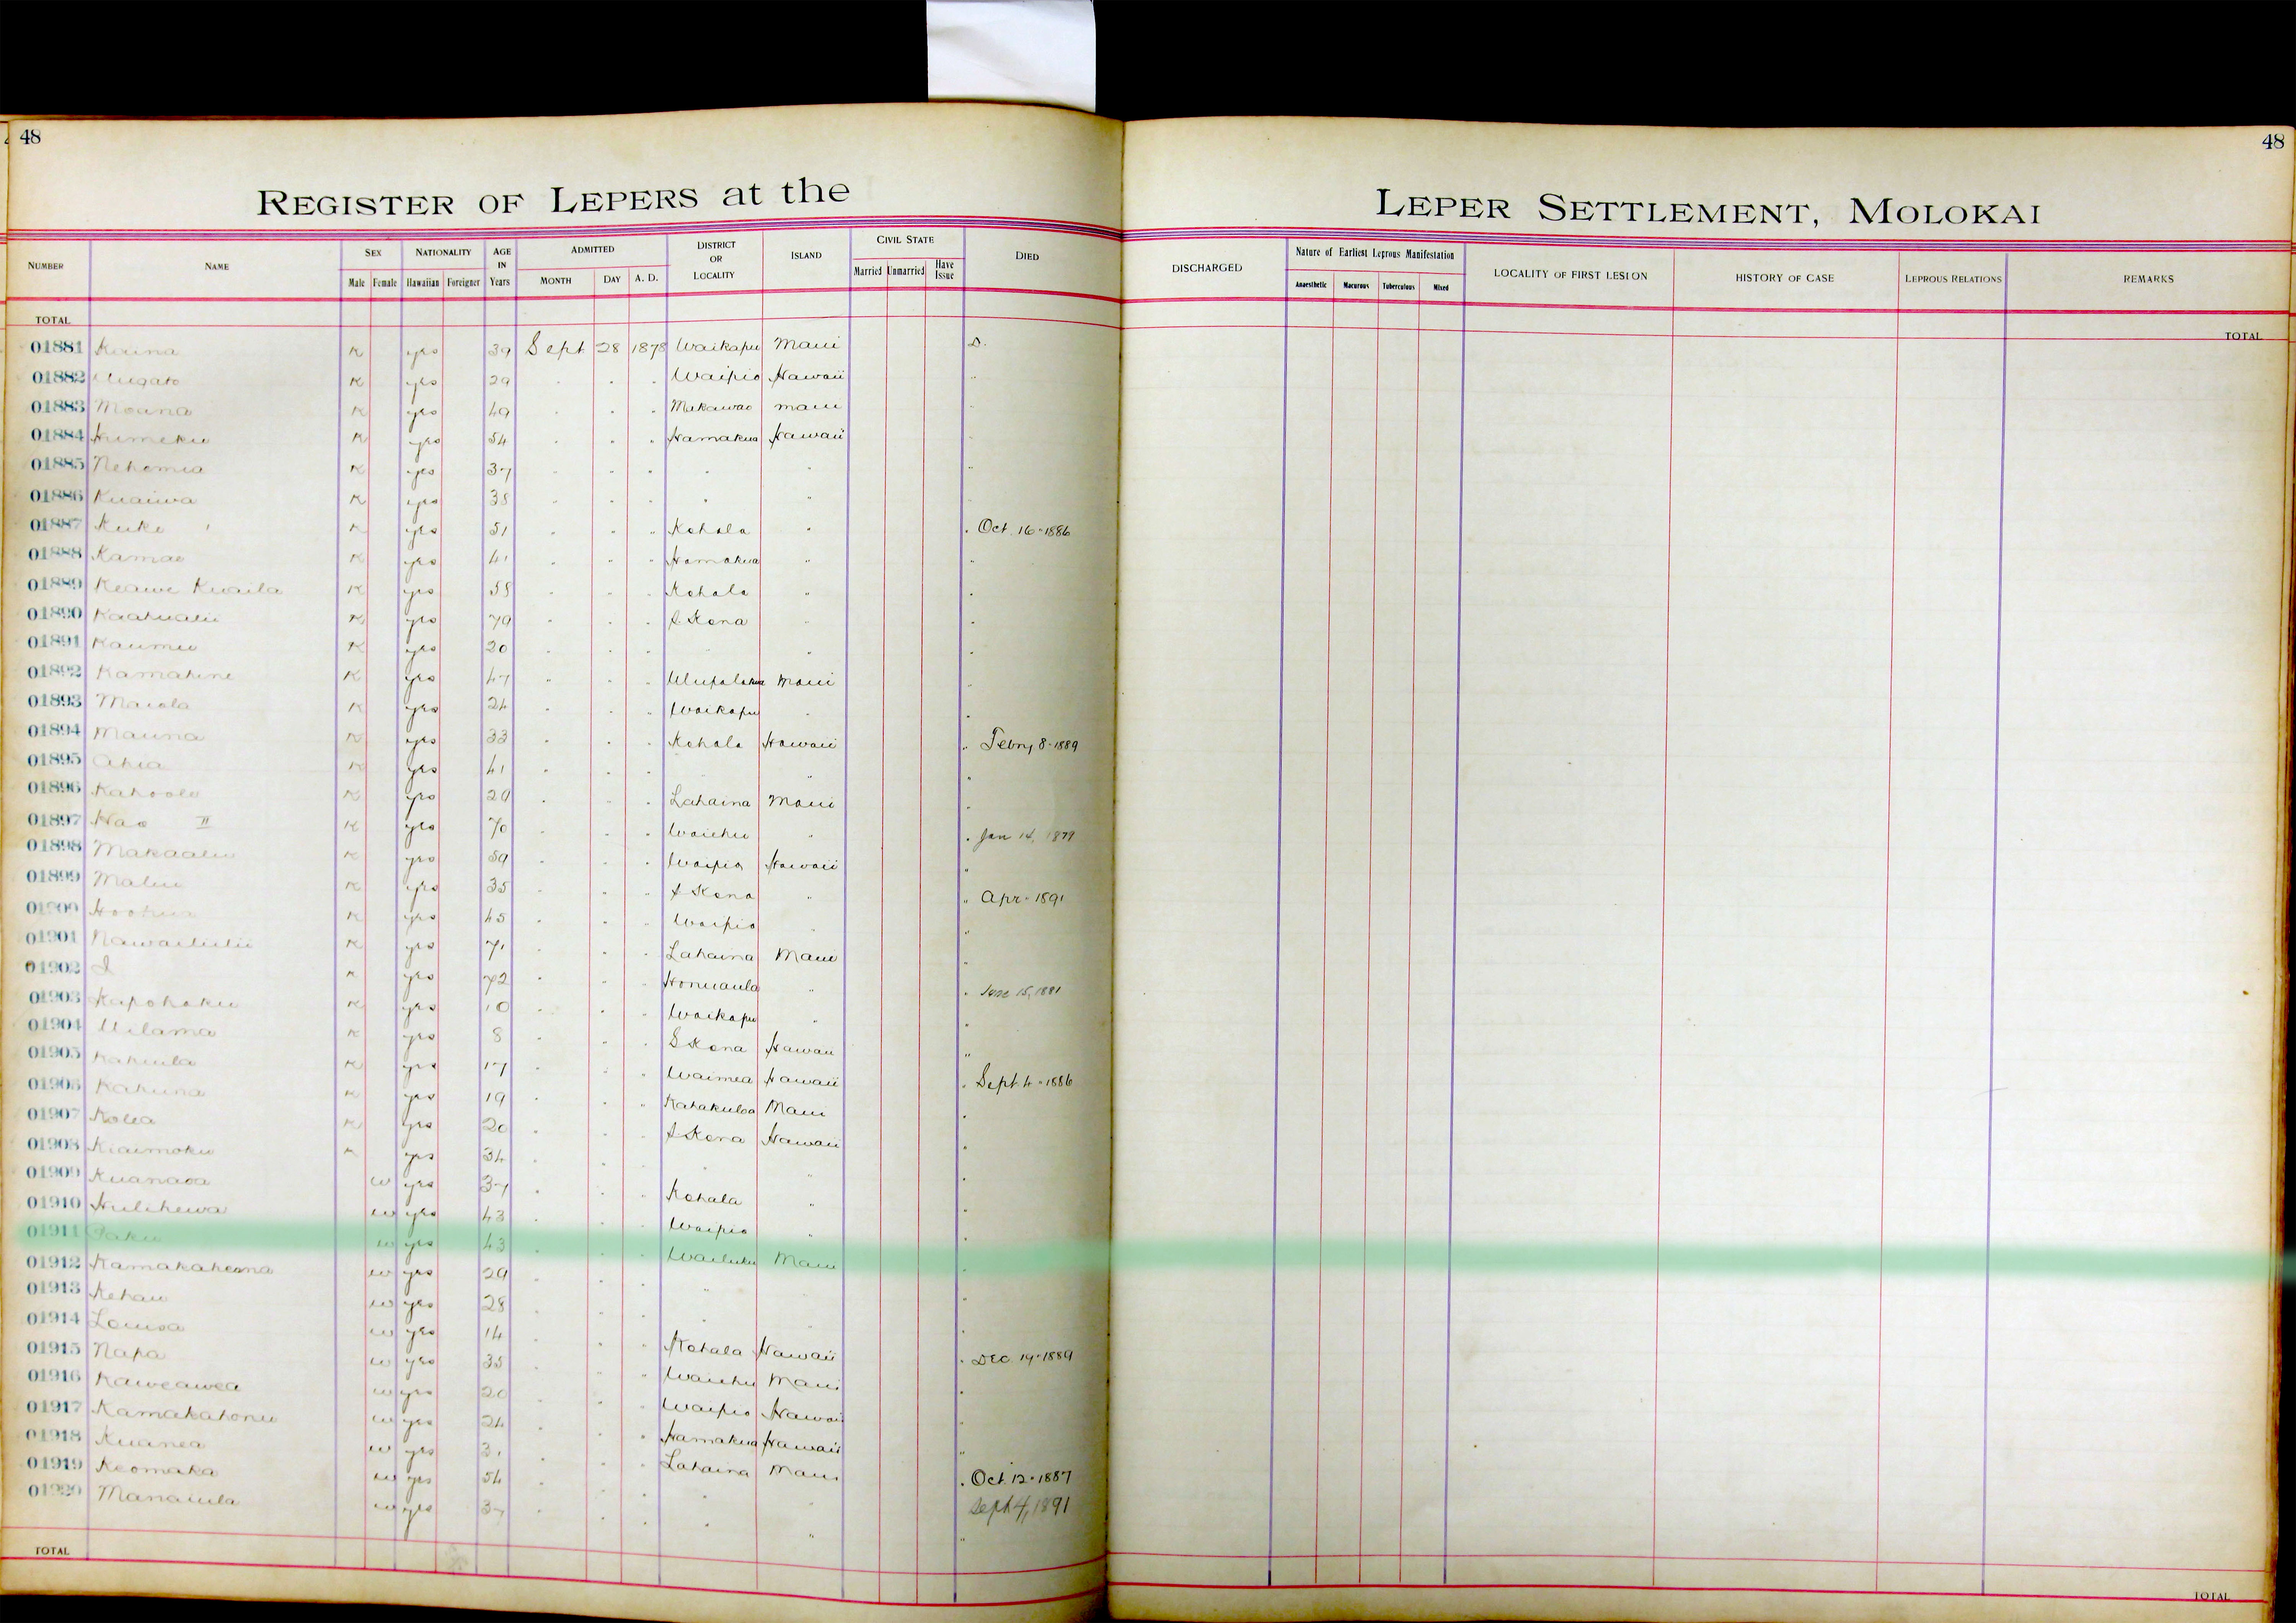 48
48
REGISTER OF LEPERS at the
LEPER SETTLEMENT, MOLOKAI
NUMBER NAME SEX NATIONALITY AGE IN Years ADMITTED DISTRICT OR LOCALITY ISLAND CIVIL STATE DIED DISCHARGED Nature of Earliest Leprous Manifestation LOCALITY OF FIRST LESION HISTORY OF CASE LEPROUS RELATIONS REMARKS
Male Female Hawaiian Foreigner MONTH DAY A. D. Married Unmarried Have Issue Anaesthetic Macurous Tuberculous Mixed
TOTAL TOTAL
01881 K yes 39 Sept 28 1878 Waikapu Maui D.
01882 K yes 29 " " " Waipio Hawaii "
01883 Moana K yes 49 " " " Makawao Maui "
01884 K yes 54 " " " Hamakua Hawaii "
01885 Nehemia K yes 37 " " " " " "
01886 Kuaiwa K yes 38 " " " " " "
01887 Kuke K yes 51 " " " Kohala " " Oct. 16 - 1886
01888 Kamae K yes 41 " " " Hamakua " "
01889 Keawe Kuaila K yes 58 " " " Kohala " "
01890 K yes 79 " " " Kona " "
01891 Kaumu K yes 20 " " " " " "
01892 Kamahine K yes 47 " " " Ulupalakua Maui "
01893 Maiola K yes 24 " " " Waikapu " "
01894 Mauna K yes 33 " " " Kohala Hawaii " Febry 8 - 1889
01895 Ahia K yes 41 " " " " " "
01896 K yes 29 " " " Lahaina Maui "
01897 Hao II K yes 70 " " " Waiehu " " Jan 14, 1879
01898 K yes 59 " " " Waipio Hawaii "
01899 Malui K yes 35 " " " Kona " " Apr - 1891
01900 K yes 45 " " " Waipio " "
01901 Nawailiilii K yes 71 " " " Lahaina Maui "
01902 I K yes 72 " " " Honuaula " " June 15, 1881
01903 Kapohaku K yes 10 " " " Waikapu " "
01904 Uilama K yes 8 " " " S Kona Hawaii "
01905 K yes 17 " " " Waimea Hawaii " Sept. 4 - 1886
01906 Kahuna K yes 19 " " " Kahakuloa Maui "
01907 Kolea K yes 20 " " " Kona Hawaii "
01908 Kiaimoku K yes 34 " " " " " "
01909 Kuanaoa w yes 37 " " " Kohala " "
01910 Hulihewa w yes 43 " " " Waipio " "
01911 w yes 43 " " " Wailuku Maui "
01912 w yes 29 " " " " "
01913 Kehau w yes 28 " " " " "
01914 Louisa w yes 14 " " " Kohala Hawaii " Dec. 19 - 1889
01915 Napa w yes 35 " " " Waiehu Maui "
01916 Kaweawea w yes 20 " " " Waipio Hawaii "
01917 Kamakahonu w yes 24 " " " Hamakua Hawaii "
01918 Kuanea w yes 31 " " " Lahaina Maui " Oct 12 - 1887
01919 Keomaka w yes 54 " " " " " Sept 4, 1891
01920 Manaiula w yes 37 " " " " " "
TOTAL TOTAL